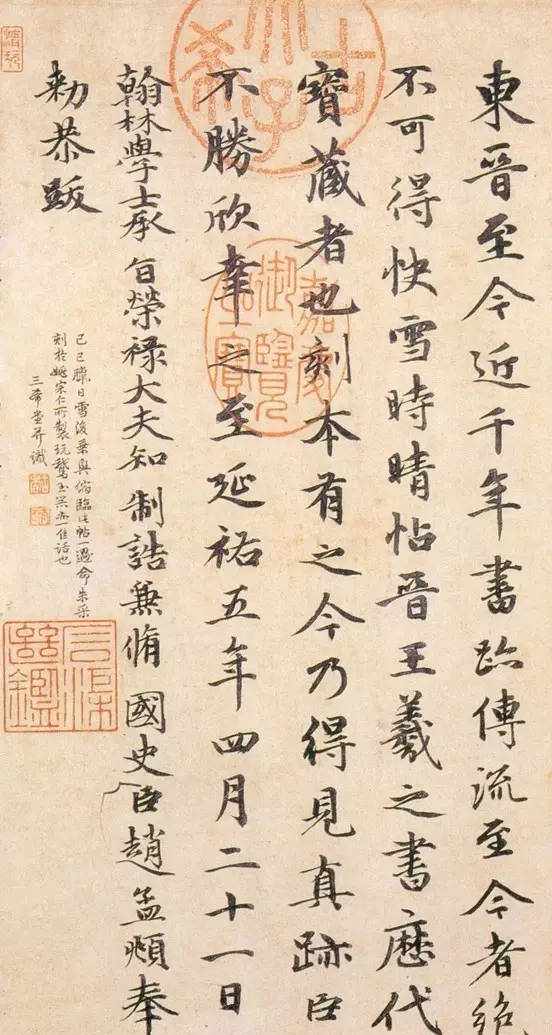 東晉至今近千年書跡傳流至今者絶
不可得快雪時晴帖晉王羲之書歷代
寶藏者也刻本有之今乃得見真跡臣
不勝欣幸之至延祐五年四月二十一日
翰林學士承旨榮祿大夫知制誥兼脩國史臣趙孟頫奉
勑恭跋
己巳臘日雪後乘興偶臨此帖一過命朱采
刻於姚宗仁所製玩鵞玉亦一佳話也
三希堂并識
古希天子
嘉慶御覽之寶